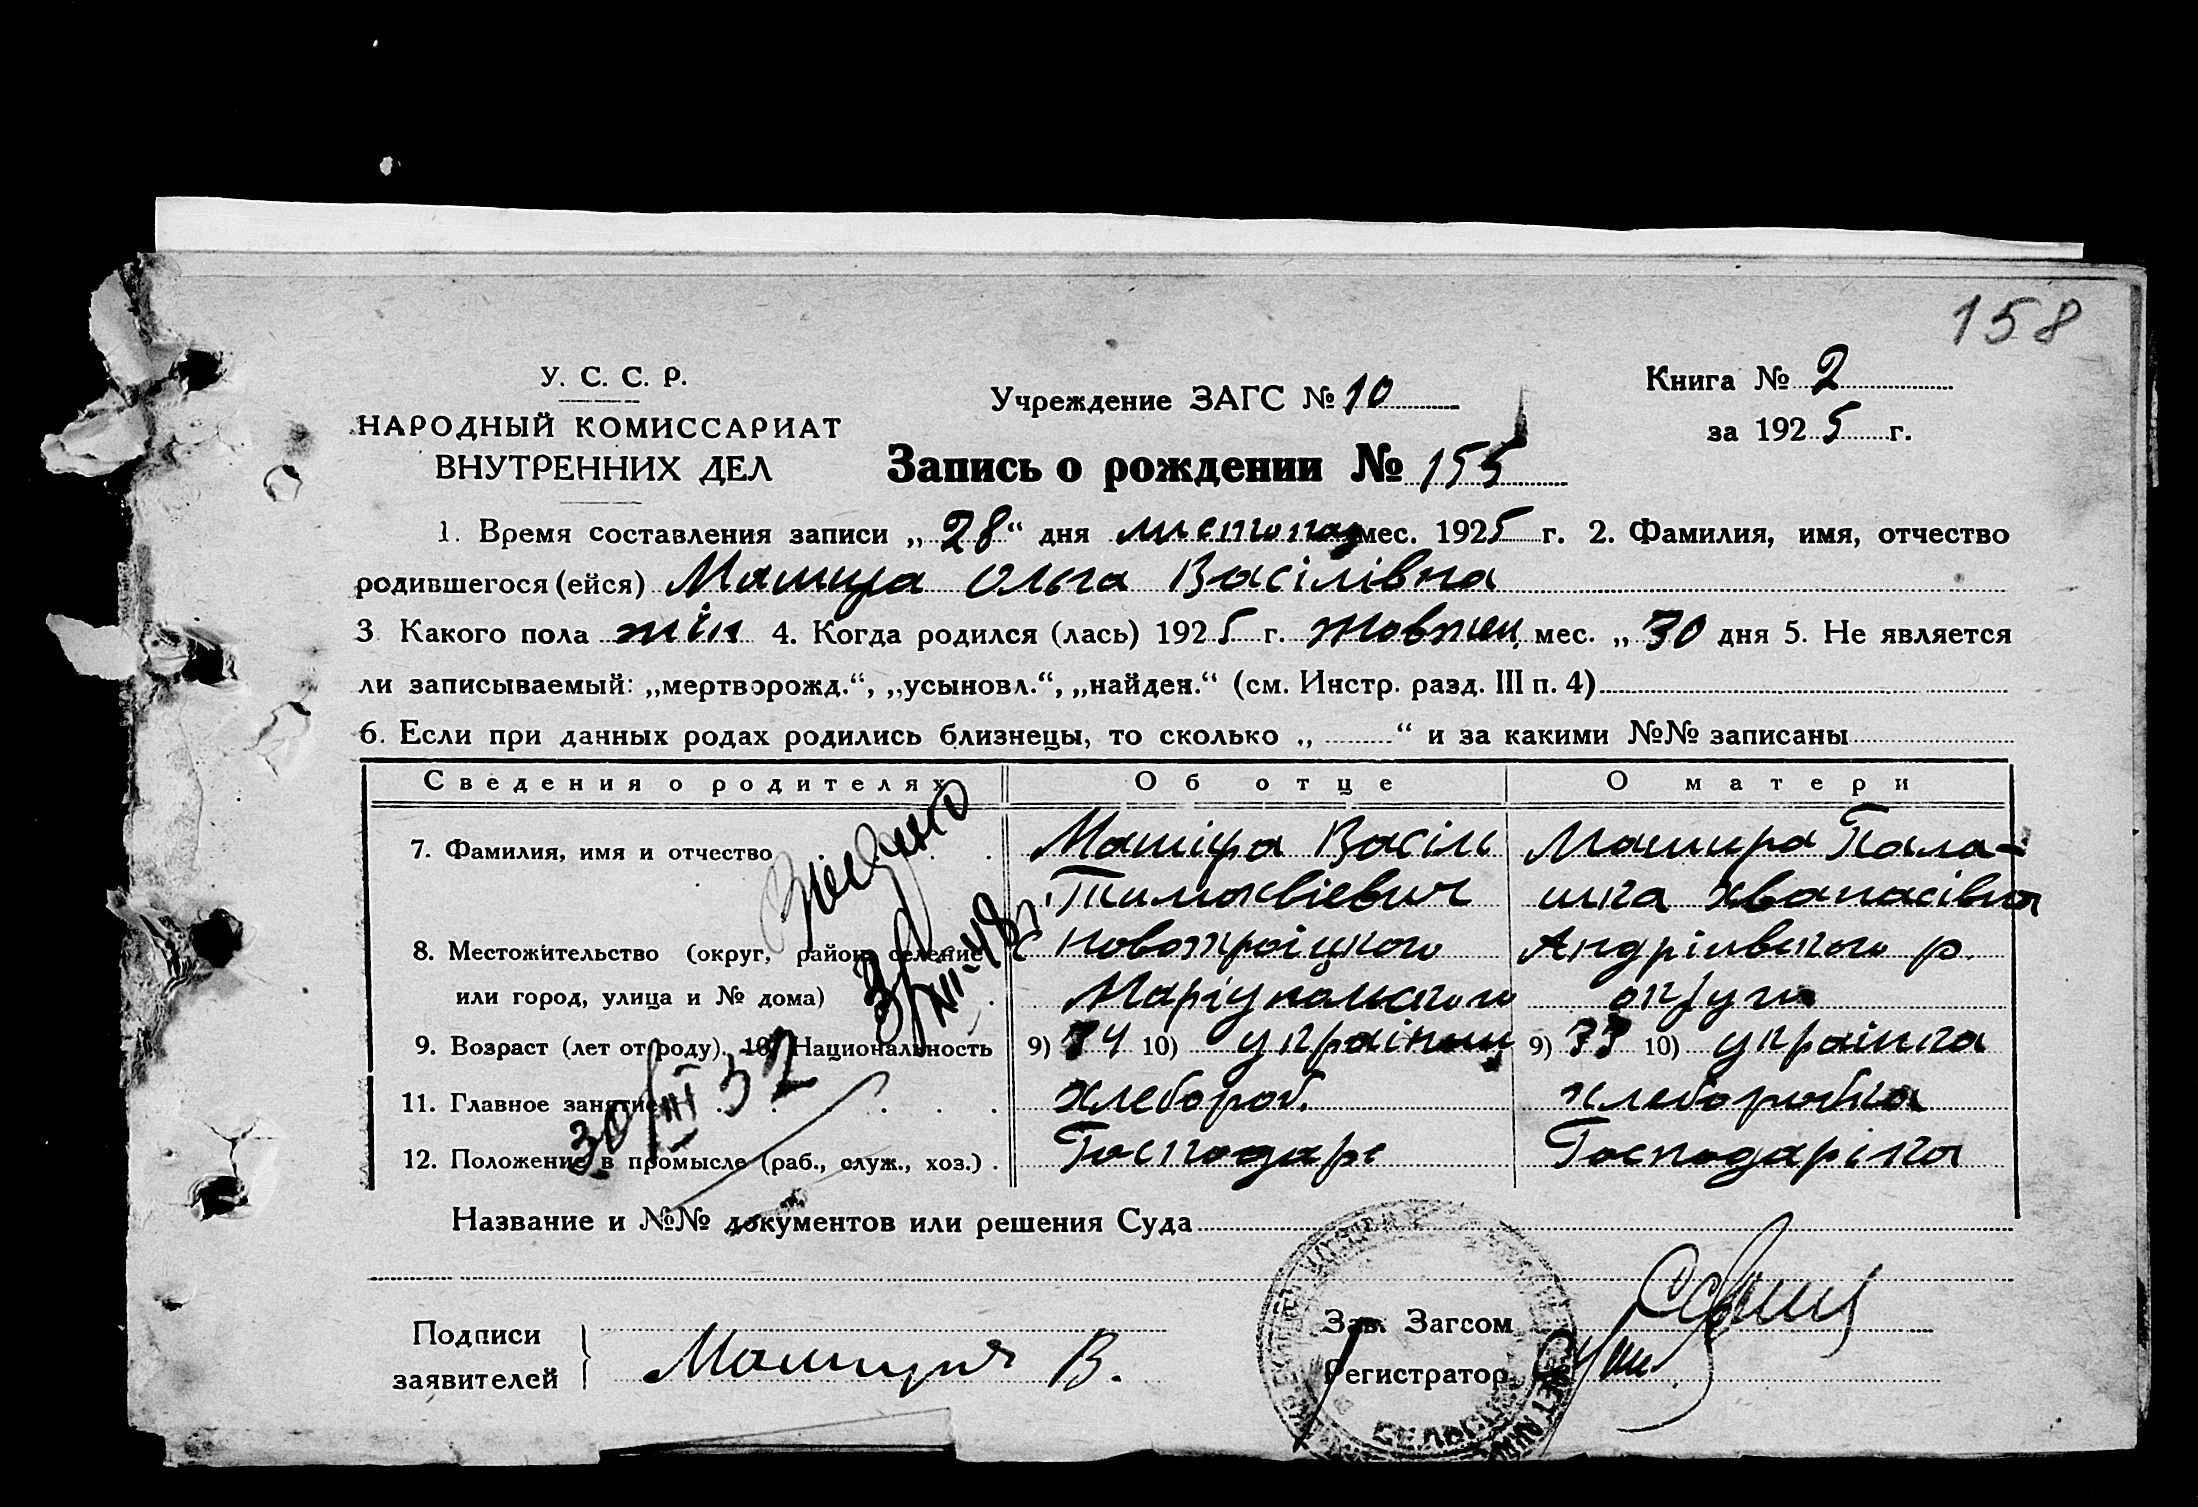 158
У. С. С. Р.
НАРОДНЫЙ КОМИССАРИАТ
ВНУТРЕННИХ ДЕЛ
Учреждение ЗАГС № 10
Книга № 2
за 1925 г.
Запись о рождении № 155
1. Время составления записи „28“ дня листопад мес. 1925 г. 2. Фамилия, имя, отчество
родившегося (ейся) Ольга Васілівна
3 Какого пола жін 4. Когда родился (лась) 1925 г. жовтен. мес. „30 дня 5. Не является
ли записываемый: „мертворожд.“, „усыновл.“, „найден.“ (см. Инстр. разд. III п. 4)
6. Если при данных родах родились близнецы, то сколько „ “ и за какими №№ записаны
Сведения о родителях Об отце О матери
7. Фамилия, имя и отчество Машіра Васіль Машира Пала-
Тимохвієвич шка Хванасівна
8. Местожительство (округ, район, селение с Новотроіцкого Андріівського р.
или город, улица и № дома) Маріупольского округи
9. Возраст (лет от роду). 10) Национальность 9) 34 10) українец 9) 33 10) українка
11. Главное занятие хлебороб. хлеборобка
12. Положение в промысле (раб., служ., хоз.) Господарь Господарка
30/III 32
Название и №№ документов или решения Суда
Подписи
заявителей
Маширя В.
Зав. Загсом
Регистратор